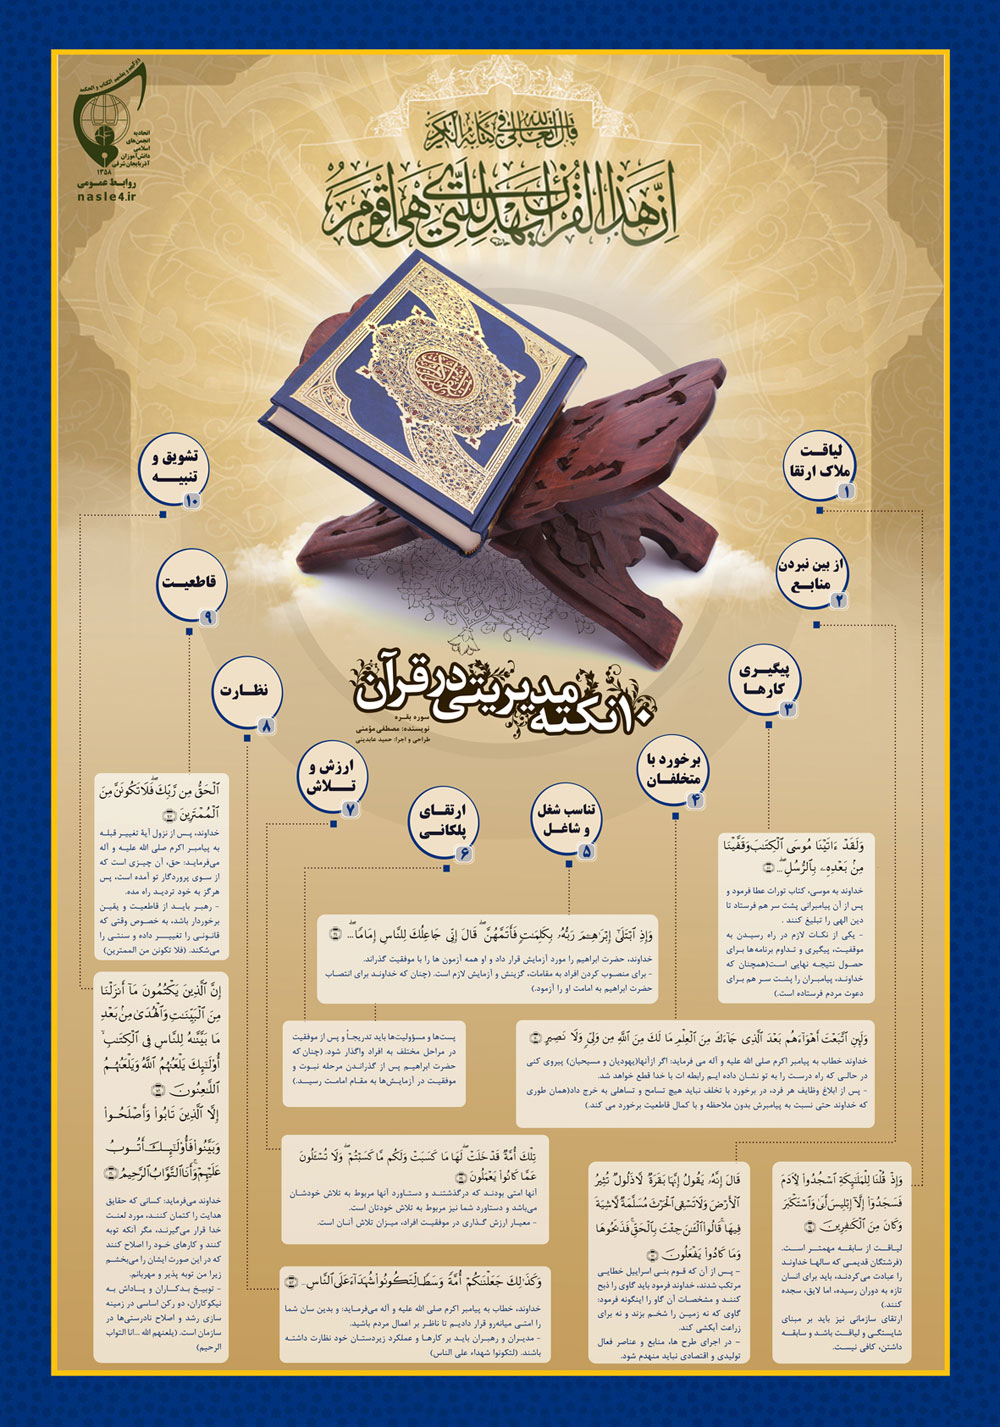 قال الله تعالی فی کتابه الکریم
اِنَّ هٰذَا القُرآنَ یَهدی لِلَّتی هِیَ اَقوَمُ
اتحادیه
انجمن‌های
اسلامی
دانش‌آموزان
آذربایجان شرقی
۱۳۵۸
روابط عمومی
nasle4.ir
۱۰ نکته مدیریتی در قرآن
سوره بقره
نویسنده: مصطفی مؤمنی
طراحی و اجرا: حمید عابدینی
لیاقت
ملاک ارتقا
۱
از بین نبردن
منابع
۲
پیگیری
کارها
۳
برخورد با
متخلفان
۴
تناسب شغل
و شاغل
۵
ارتقای
پلکانی
۶
ارزش و
تلاش
۷
نظارت
۸
قاطعیت
۹
تشویق و
تنبیه
۱۰
وَإِذْ قُلْنَا لِلْمَلَـٰٓئِكَةِ ٱسْجُدُوا۟ لِـَٔادَمَ
فَسَجَدُوٓا۟ إِلَّآ إِبْلِيسَ أَبَىٰ وَٱسْتَكْبَرَ
وَكَانَ مِنَ ٱلْكَـٰفِرِينَ
لیاقت از سابقه مهمتر است.
(فرشتگان قدیمی که سالها خداوند
را عبادت می‌کردند، باید برای انسان
تازه به دوران رسیده، اما لایق، سجده
کنند.)
ارتقای سازمانی نیز باید بر مبنای
شایستگی و لیاقت باشد و سابقه
داشتن، کافی نیست.
قَالَ إِنَّهُۥ يَقُولُ إِنَّهَا بَقَرَةٌ لَّا ذَلُولٌ تُثِيرُ
ٱلْأَرْضَ وَلَا تَسْقِى ٱلْحَرْثَ مُسَلَّمَةٌ لَّا شِيَةَ
فِيهَا ۚ قَالُوا۟ ٱلْـَٔـٰنَ جِئْتَ بِٱلْحَقِّ ۚ فَذَبَحُوهَا
وَمَا كَادُوا۟ يَفْعَلُونَ
- پس از آن که قوم بنی اسراییل خطایی
مرتکب شدند، خداوند فرمود باید گاوی را ذبح
کنند و مشخصات آن گاو را اینگونه فرمود:
گاوی که نه زمین را شخم بزند و نه برای
زراعت آبکشی کند.
- در اجرای طرح ها، منابع و عناصر فعال
تولیدی و اقتصادی نباید منهدم شود.
وَلَقَدْ ءَاتَيْنَا مُوسَى ٱلْكِتَـٰبَ وَقَفَّيْنَا
مِنۢ بَعْدِهِۦ بِٱلرُّسُلِ ۖ ...
خداوند به موسی، کتاب تورات عطا فرمود و
پس از آن پیامبرانی پشت سر هم فرستاد تا
دین الهی را تبلیغ کنند .
- یکی از نکات لازم در راه رسیدن به
موفقیت، پیگیری و تداوم برنامه‌ها برای
حصول نتیجه نهایی است(همچنان که
خداوند، پیامبران را پشت سر هم برای
دعوت مردم فرستاده است.)
وَلَئِنِ ٱتَّبَعْتَ أَهْوَآءَهُم بَعْدَ ٱلَّذِى جَآءَكَ مِنَ ٱلْعِلْمِ ۙ مَا لَكَ مِنَ ٱللَّهِ مِن وَلِىٍّ وَلَا نَصِيرٍ
خداوند خطاب به پیامبر اکرم صلی الله علیه و آله می فرماید: اگر ازآنها(یهودیان و مسیحیان) پیروی کنی
در حالی که راه درست را به تو نشان داده ایم رابطه ات با خدا قطع خواهد شد.
- پس از ابلاغ وظایف هر فرد، در برخورد با تخلف نباید هیچ تسامح و تساهلی به خرج داد(همان طوری
که خداوند حتی نسبت به پیامبرش بدون ملاحظه و با کمال قاطعیت برخورد می کند.)
وَإِذِ ٱبْتَلَىٰٓ إِبْرَٰهِـۧمَ رَبُّهُۥ بِكَلِمَـٰتٍ فَأَتَمَّهُنَّ ۖ قَالَ إِنِّى جَاعِلُكَ لِلنَّاسِ إِمَامًا ۖ ...
خداوند، حضرت ابراهیم را مورد آزمایش قرار داد و او همه آزمون ها را با موفقیت گذراند.
- برای منصوب کردن افراد به مقامات، گزینش و آزمایش لازم است. (چنان که خداوند برای انتصاب
حضرت ابراهیم به امامت او را آزمود.)
پست‌ها و مسؤولیت‌ها باید تدریجاً و پس از موفقیت
در مراحل مختلف به افراد واگذار شود. (چنان که
حضرت ابراهیم پس از گذراندن مرحله نبوت و
موفقیت در آزمایش‌ها به مقام امامت رسید.)
تِلْكَ أُمَّةٌ قَدْ خَلَتْ ۖ لَهَا مَا كَسَبَتْ وَلَكُم مَّا كَسَبْتُمْ ۖ وَلَا تُسْـَٔلُونَ
عَمَّا كَانُوا۟ يَعْمَلُونَ
آنها امتی بودند که درگذشتند و دستاورد آنها مربوط به تلاش خودشان
می‌باشد و دستاورد شما نیز مربوط به تلاش خودتان است.
- معیار ارزش گذاری در موفقیت افراد، میزان تلاش آنان است.
وَكَذَٰلِكَ جَعَلْنَـٰكُمْ أُمَّةً وَسَطًا لِّتَكُونُوا۟ شُهَدَآءَ عَلَى ٱلنَّاسِ...
خداوند، خطاب به پیامبر اکرم صلی الله علیه و آله می‌فرماید: و بدین سان شما
را امتی میانه‌رو قرار دادیم تا ناظر بر اعمال مردم باشید.
- مدیران و رهبران باید بر کارها و عملکرد زیردستان خود نظارت داشته
باشند. (لتکونوا شهداء علی الناس)
ٱلْحَقُّ مِن رَّبِّكَ ۖ فَلَا تَكُونَنَّ مِنَ
ٱلْمُمْتَرِينَ
خداوند، پس از نزول آیهٔ تغییر قبله
به پیامبر اکرم صلی الله علیه و آله
می‌فرماید: حق، آن چیزی است که
از سوی پروردگار تو آمده است، پس
هرگز به خود تردید راه مده.
- رهبر باید از قاطعیت و یقین
برخوردار باشد، به خصوص وقتی که
قانونی را تغییر داده و سنتی را
می‌شکند. (فلا تکونن من الممترین)
إِنَّ ٱلَّذِينَ يَكْتُمُونَ مَآ أَنزَلْنَا
مِنَ ٱلْبَيِّنَـٰتِ وَٱلْهُدَىٰ مِنۢ بَعْدِ
مَا بَيَّنَّـٰهُ لِلنَّاسِ فِى ٱلْكِتَـٰبِ ۙ
أُو۟لَـٰٓئِكَ يَلْعَنُهُمُ ٱللَّهُ وَيَلْعَنُهُمُ
ٱللَّـٰعِنُونَ
إِلَّا ٱلَّذِينَ تَابُوا۟ وَأَصْلَحُوا۟
وَبَيَّنُوا۟ فَأُو۟لَـٰٓئِكَ أَتُوبُ
عَلَيْهِمْ ۚ وَأَنَا ٱلتَّوَّابُ ٱلرَّحِيمُ
خداوند می‌فرماید: کسانی که حقایق
هدایت را کتمان کنند، مورد لعنت
خدا قرار می‌گیرند، مگر آنکه توبه
کنند و کارهای خود را اصلاح کنند
که در این صورت ایشان را می‌بخشم
زیرا من توبه پذیر و مهربانم.
- توبیخ بدکاران و پاداش به
نیکوکاران، دو رکن اساسی در زمینه
سازی رشد و اصلاح نادرستی‌ها در
سازمان است. (یلعنهم الله ...انا التواب
الرحیم)